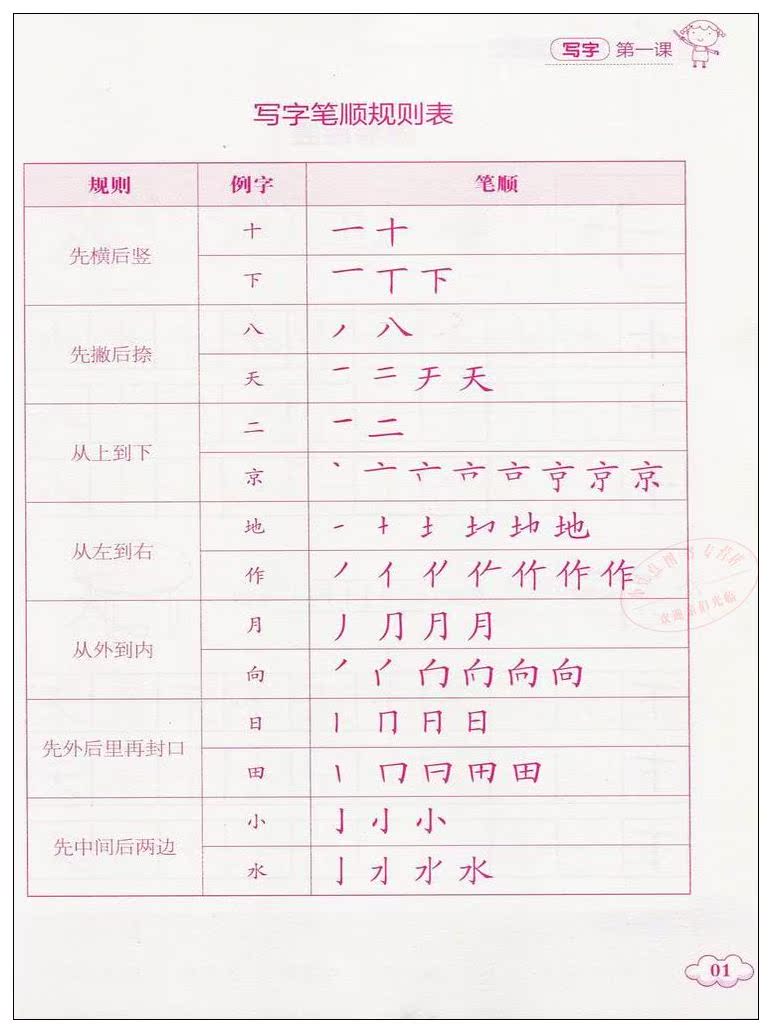 写字 第一课
写字笔顺规则表
规则 例字 笔顺
先横后竖 十 一 十
下 一 丅 下
先撇后捺 八 丿 八
天 一 二 チ 天
从上到下 二 一 二
京 丶 亠 京
从左到右 地 一 十 土 地
作 丿 亻 作 作
从外到内 月 丿 月 月
向 丿 向 向
先外后里再封口 日 丨 冂 日
田 丨 冂 田
先中间后两边 小 亅 小
水 亅 水
欢迎亲们光临
01